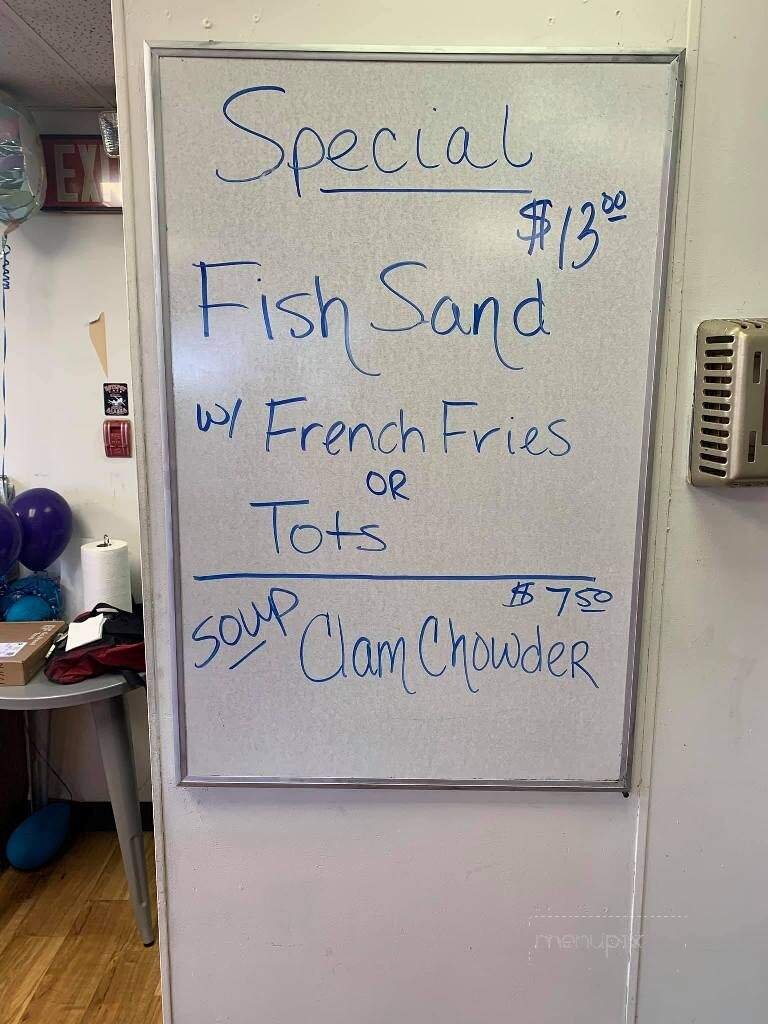 EXI
Special
$13.00
Fish Sand
w/ French Fries
OR
Tots
$7.50
SOUP Clam Chowder
menupix